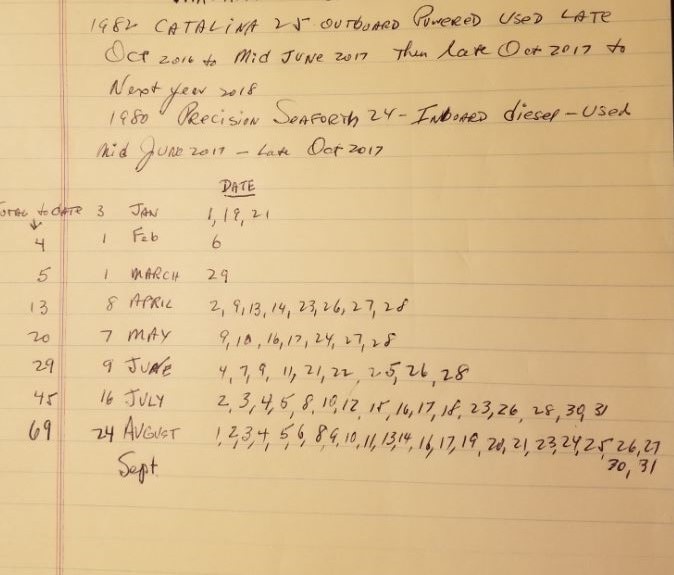 1982 CATALINA 25 OUTBOARD POWERED USED LATE
Oct 2016 to Mid JUNE 2017 Then late Oct 2017 to
Next year 2018
1980 PRECISION SEAFORTH 24 - INBOARD diesel - Used
Mid JUNE 2017 - Late Oct 2017
DATE
TOTAL to DATE 3 JAN 1, 19, 21
4 1 Feb 6
5 1 MARCH 29
13 8 APRIL 2, 9, 13, 14, 23, 26, 27, 28
20 7 MAY 9, 10, 16, 17, 24, 27, 28
29 9 JUNE 4, 7, 9, 11, 21, 22, 25, 26, 28
45 16 JULY 2, 3, 4, 5, 8, 10, 12, 15, 16, 17, 18, 23, 26, 28, 30, 31
69 24 AUGUST 1, 2, 3, 4, 5, 6, 8, 9, 10, 11, 13, 14, 16, 17, 19, 20, 21, 23, 24, 25, 26, 27
30, 31
Sept